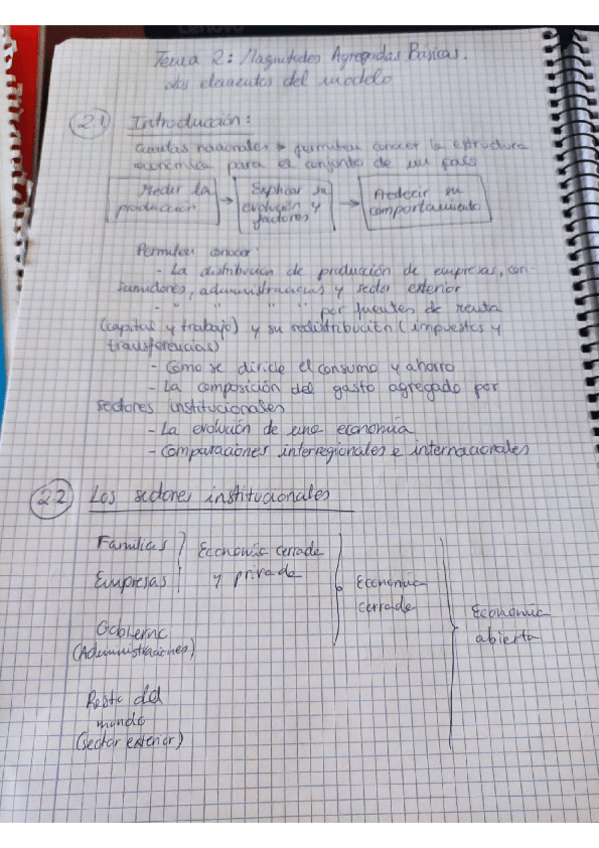 Lenovo
Tema 2: Magnitudes Agregadas Básicas.
Los elementos del modelo
2.1 Introducción:
Cuentas nacionales → permiten conocer la estructura
económica para el conjunto de un país
Medir la producción → Explicar su evolución y factores → Predecir su comportamiento
Permiten conocer:
- La distribución de producción de empresas, con-
sumidores, administraciones y sector exterior
- " " " " por fuentes de renta
(capital y trabajo) y su redistribución (impuestos y
transferencias)
- Cómo se divide el consumo y ahorro
- La composición del gasto agregado por
sectores institucionales
- La evolución de una economía
- Comparaciones interregionales e internacionales
2.2 Los sectores institucionales
Familias
Empresas
Economía cerrada
y privada
Gobierno
(Administraciones)
Economía
cerrada
Resto del
mundo
(sector exterior)
Economía
abierta